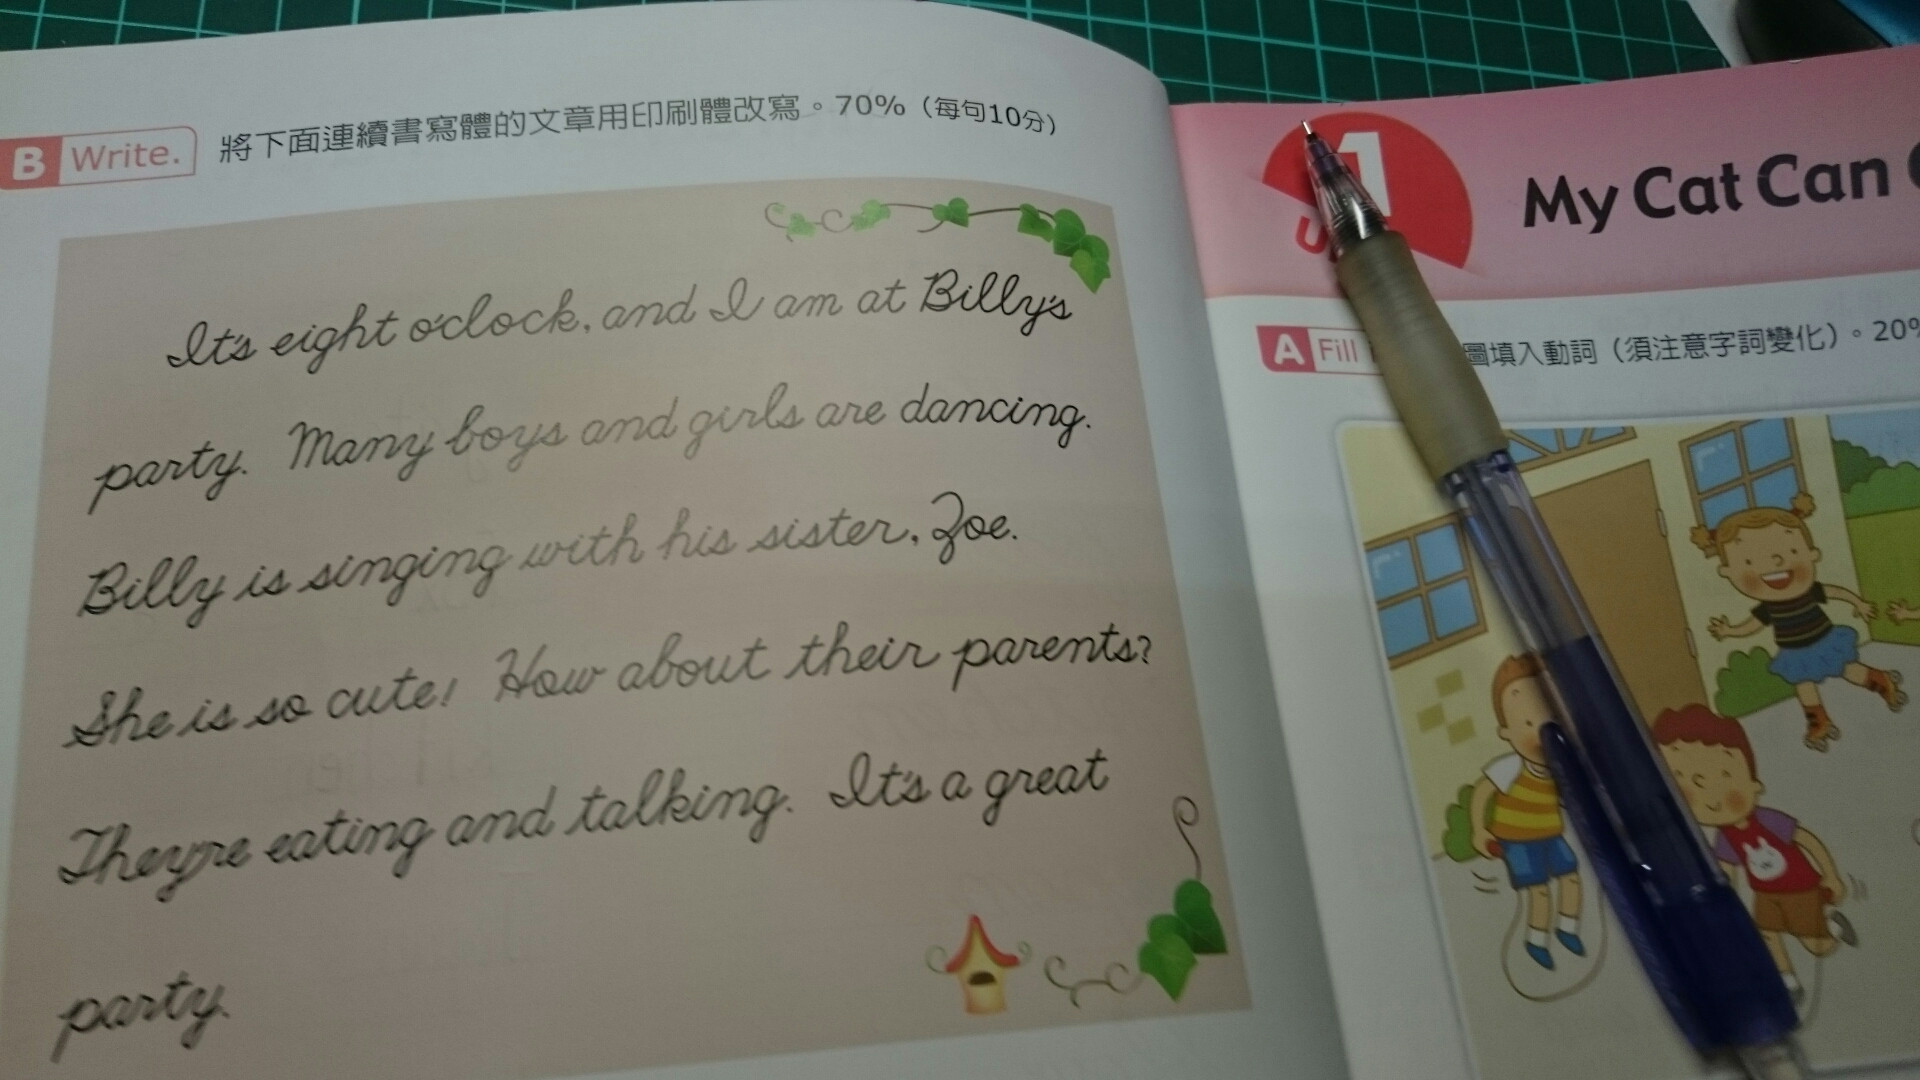 B Write. 將下面連續書寫體的文章用印刷體改寫。70%（每句10分）
It's eight o'clock, and I am at Billy's
party. Many boys and girls are dancing.
Billy is singing with his sister, Zoe.
She is so cute! How about their parents?
They're eating and talking. It's a great
party.
1
My Cat Can
A Fill 圖填入動詞（須注意字詞變化）。20%